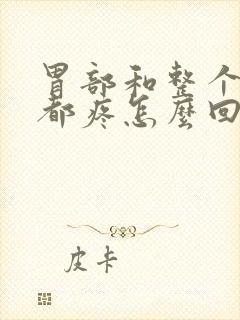 胃部和整个
都疼怎麼回
皮卡